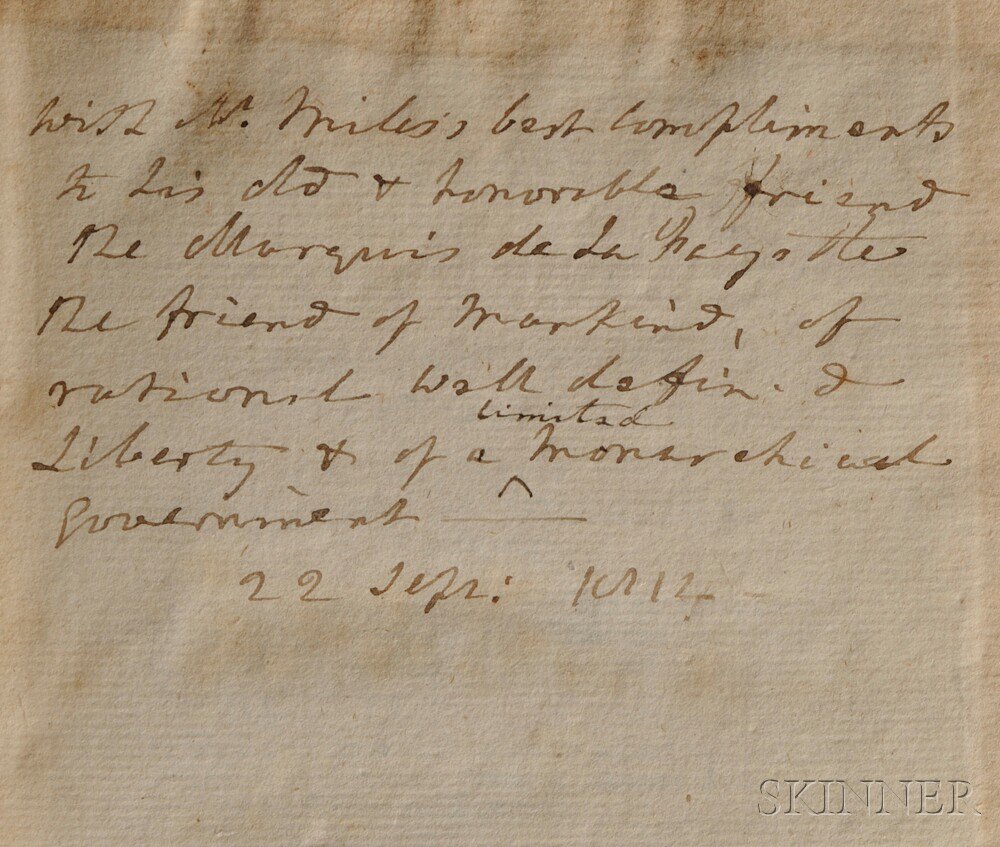 with Mr. Miles's best compliments
to his old & honorable friend
the Marquis de La Fayette
the friend of Mankind, of
rational well defin'd
limited
Liberty & of a ^ Monarchical
Government —
22 Sepr: 1814 -
SKINNER